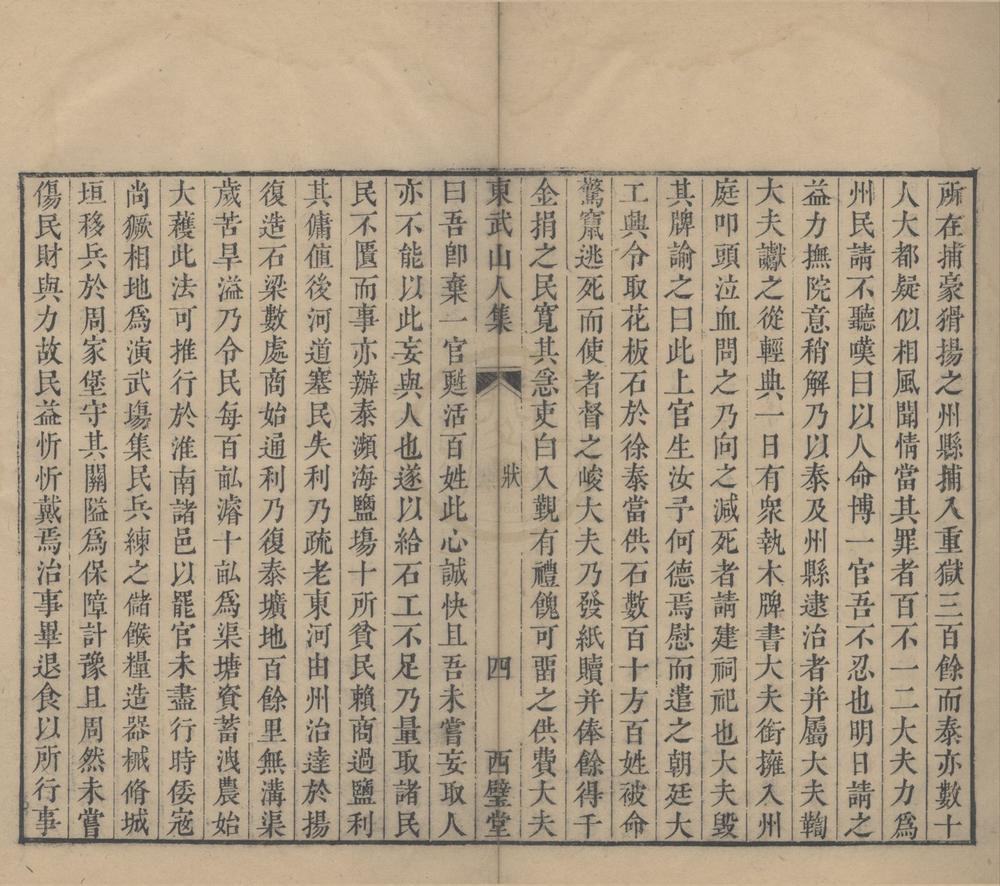 所在捕豪猾揚之州縣捕入重獄三百餘而泰亦數十
人大都疑似相風聞情當其罪者百不一二大夫力爲
州民請不聽嘆曰以人命博一官吾不忍也明日請之
益力撫院意稍解乃以泰及州縣逮治者并屬大夫鞫
大夫讞之從輕典一日有衆執木牌書大夫銜擁入州
庭叩頭泣血問之乃向之減死者請建祠祀也大夫毀
其牌諭之曰此上官生汝予何德焉慰而遣之朝廷大
工興令取花板石於徐泰當供石數百十方百姓被命
驚竄逃死而使者督之峻大夫乃發紙贖并俸餘得千
金捐之民寬其急吏白入覲有禮餽可畱之供費大夫
東武山人集 狀 四 西璧堂
曰吾卽棄一官甦活百姓此心誠快且吾未嘗妄取人
亦不能以此妄與人也遂以給石工不足乃量取諸民
民不匱而事亦辦泰瀕海鹽塲十所貧民賴商過鹽利
其傭值後河道塞民失利乃疏老東河由州治達於揚
復造石梁數處商始通利乃復泰壙地百餘里無溝渠
歲苦旱溢乃令民每百畝濬十畝爲渠塘資蓄洩農始
大穫此法可推行於淮南諸邑以罷官未盡行時倭寇
尚獗相地爲演武塲集民兵練之儲餱糧造器械脩城
垣移兵於周家堡守其關隘爲保障計豫且周然未嘗
傷民財與力故民益忻忻戴焉治事畢退食以所行事